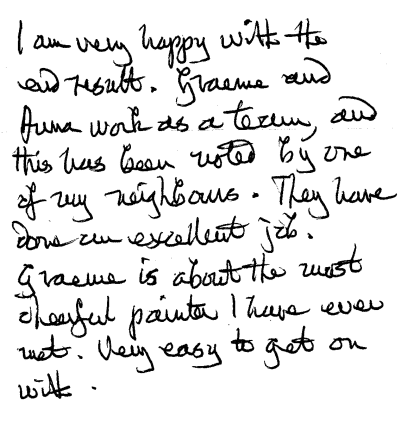 I am very happy with the
end result. Graeme and
Anna work as a team, and
this has been noted by one
of my neighbours. They have
done an excellent job.
Graeme is about the most
cheerful painter I have ever
met. Very easy to get on
with.